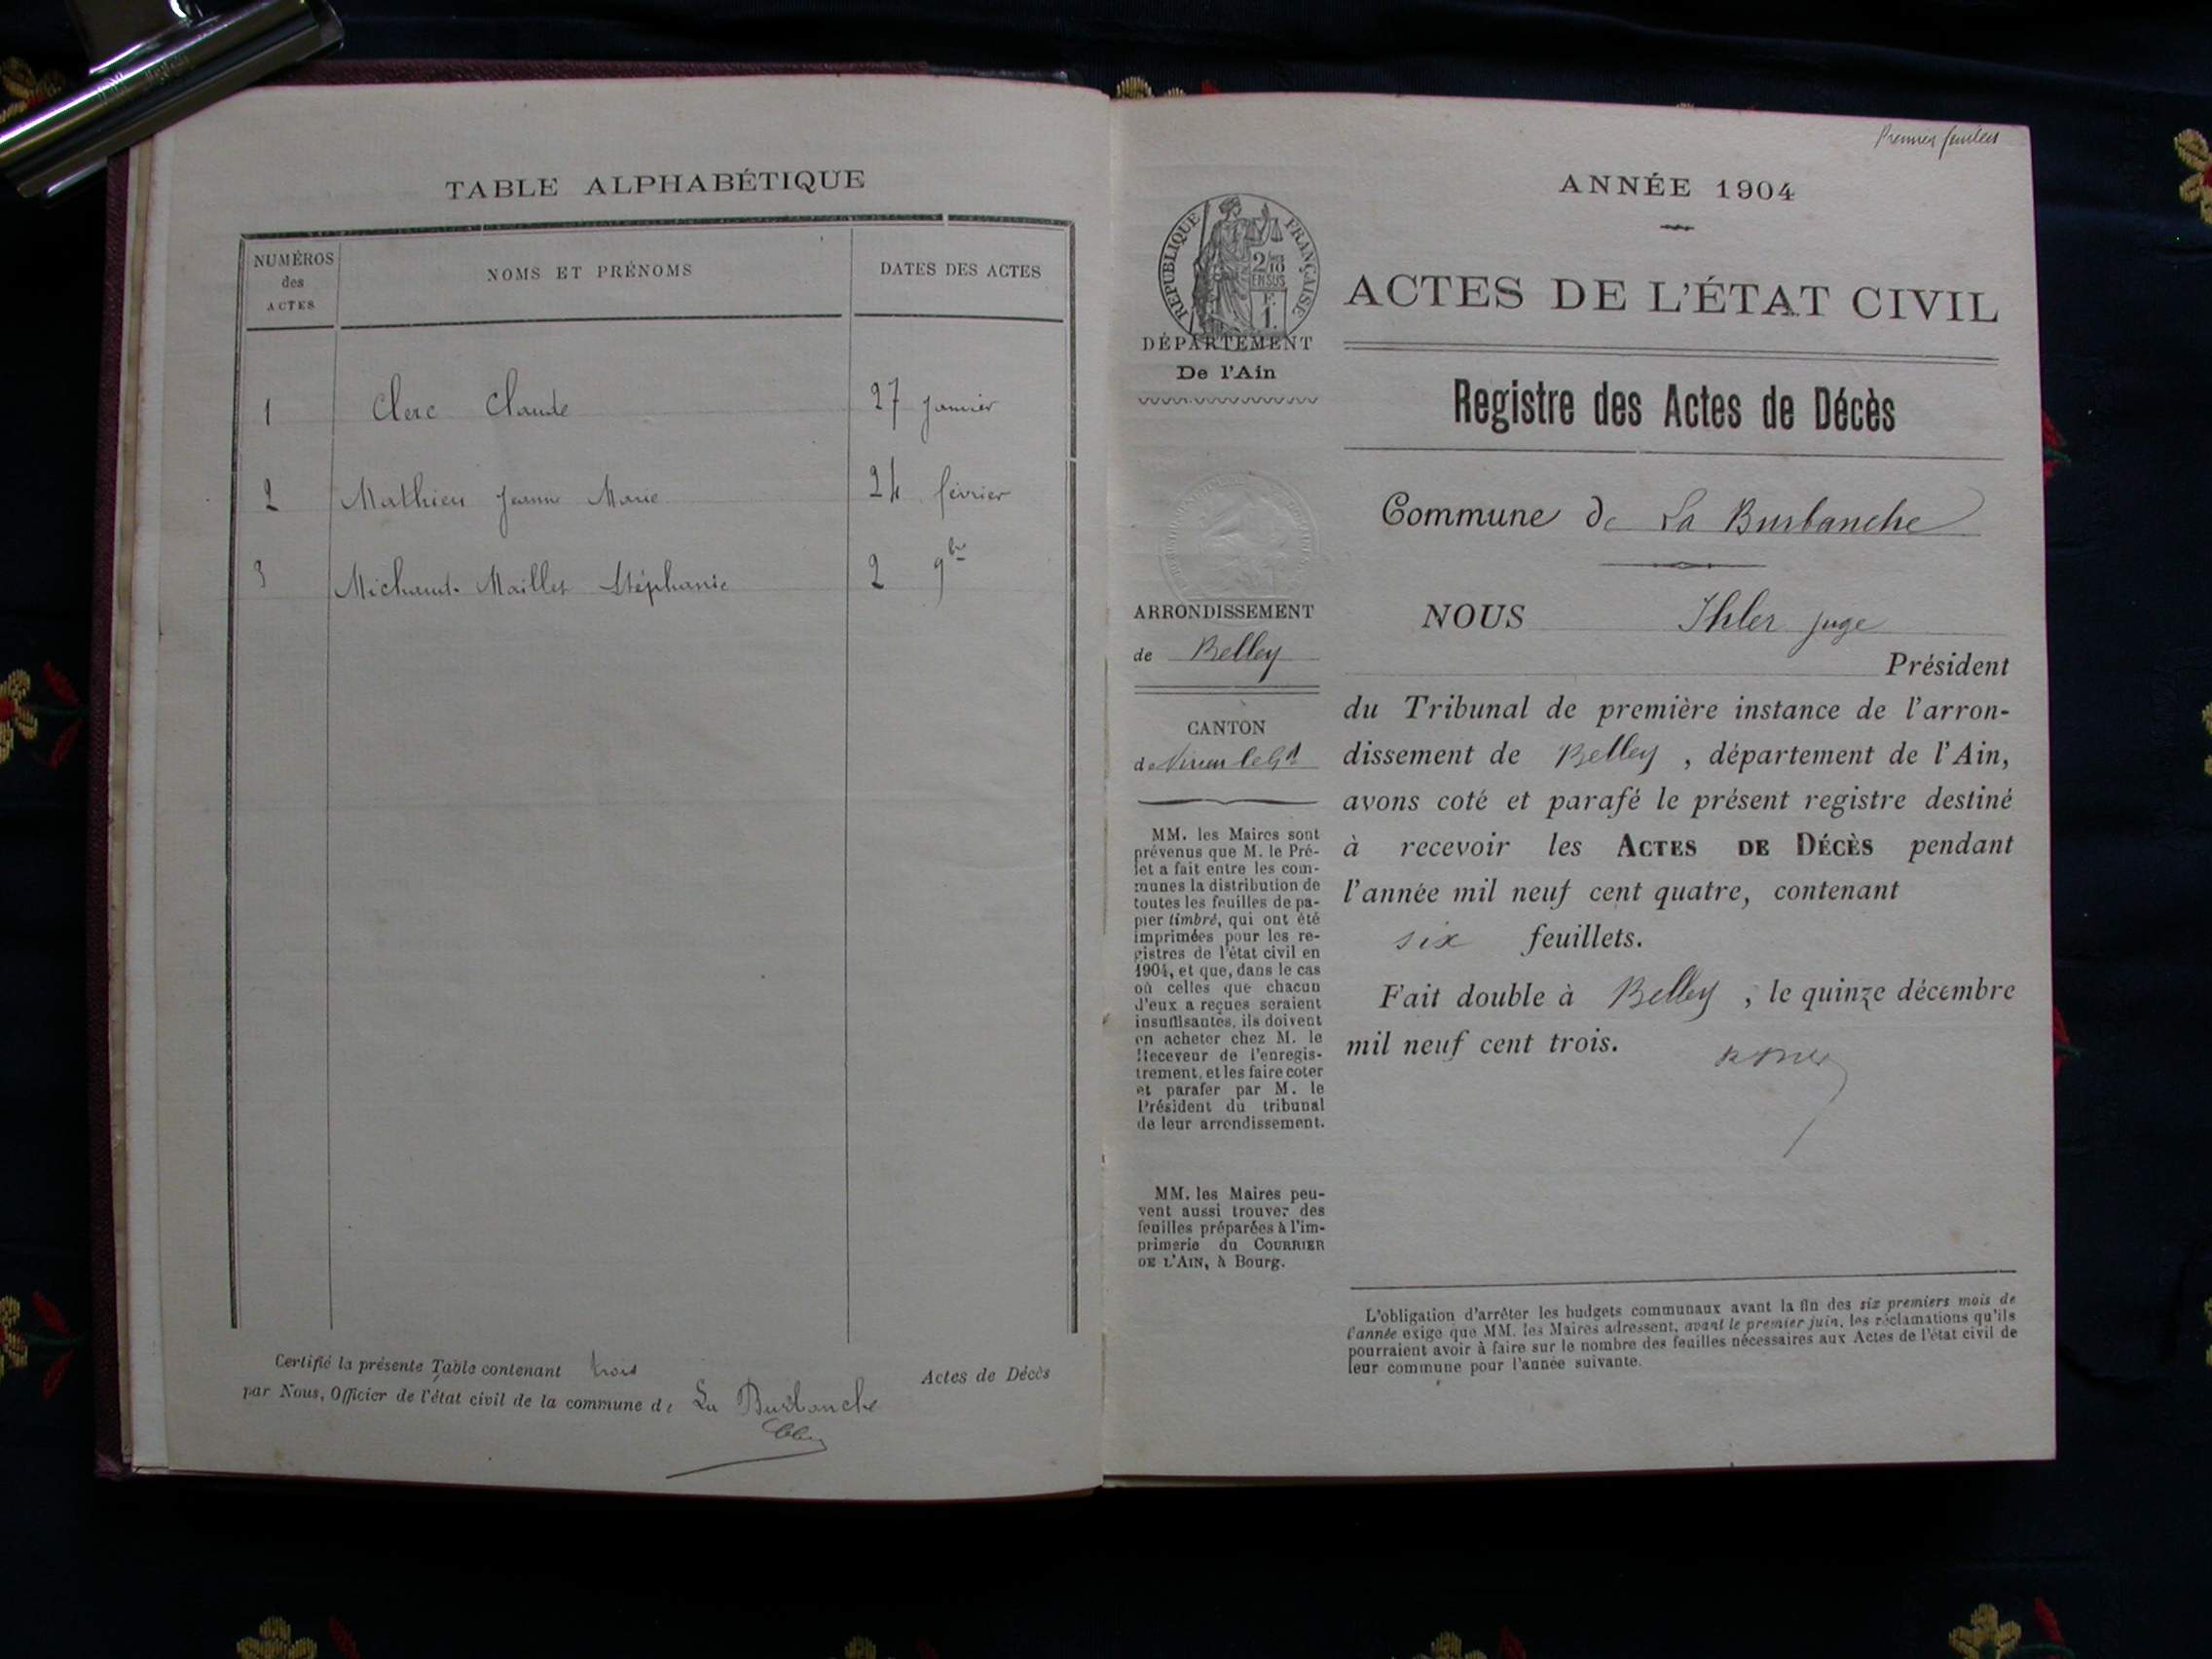 TABLE ALPHABÉTIQUE
NUMÉROS
des
ACTES
NOMS ET PRÉNOMS
DATES DES ACTES
1 Clerc Claude 27 janvier
2 Mathieu Jeanne Marie 24 février
3 Michaud-Maillet Stéphanie 2 9bre
Certifié la présente Table contenant trois Actes de Décès
par Nous, Officier de l'état civil de la commune de La Burbanche
Premier feuillet
ANNÉE 1904
RÉPUBLIQUE FRANÇAISE
2/10
EN SUS
F.
1.
DÉPARTEMENT
De l'Ain
ARRONDISSEMENT
de Belley
CANTON
de Virieu le Gd
MM. les Maires sont
prévenus que M. le Pré-
fet a fait entre les com-
munes la distribution de
toutes les feuilles de pa-
pier timbré, qui ont été
imprimées pour les re-
gistres de l'état civil en
1904, et que, dans le cas
où celles que chacun
d'eux a reçues seraient
insuffisantes, ils doivent
en acheter chez M. le
Receveur de l'enregis-
trement, et les faire coter
et parafer par M. le
Président du tribunal
de leur arrondissement.
MM. les Maires peu-
vent aussi trouver des
feuilles préparées à l'im-
primerie du COURRIER
DE L'AIN, à Bourg.
ACTES DE L'ÉTAT CIVIL
Registre des Actes de Décès
Commune de La Burbanche
NOUS Ihler juge
Président
du Tribunal de première instance de l'arron-
dissement de Belley , département de l'Ain,
avons coté et parafé le présent registre destiné
à recevoir les ACTES DE DÉCÈS pendant
l'année mil neuf cent quatre, contenant
six feuillets.
Fait double à Belley , le quinze décembre
mil neuf cent trois.
L'obligation d'arrêter les budgets communaux avant la fin des six premiers mois de
l'année exige que MM. les Maires adressent, avant le premier juin, les réclamations qu'ils
pourraient avoir à faire sur le nombre des feuilles nécessaires aux Actes de l'état civil de
leur commune pour l'année suivante.